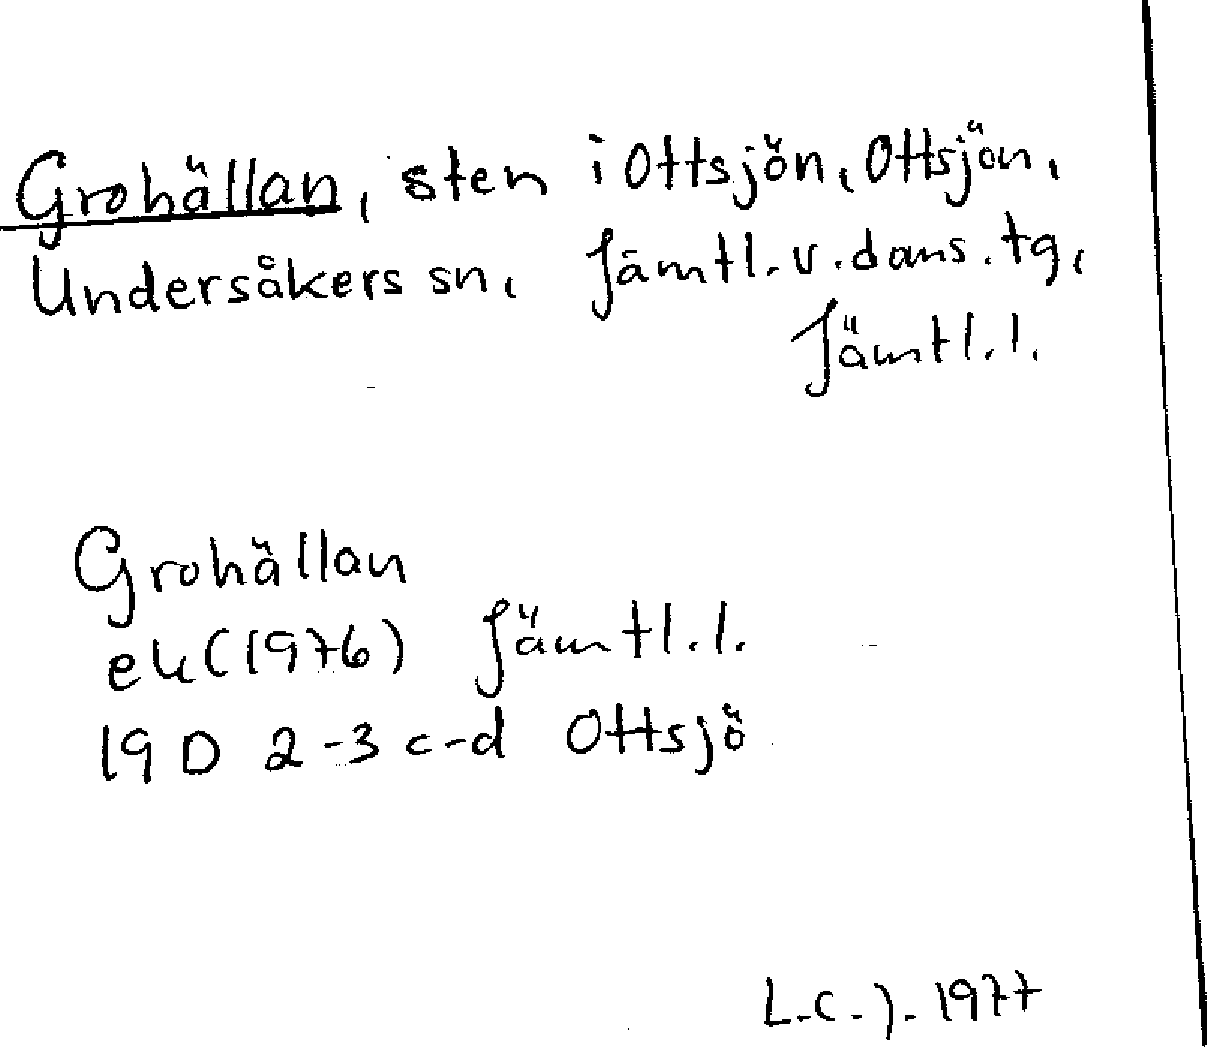 Grohällan, sten i Ottsjön, Ottsjön,
Undersåkers sn, Jämtl. v. doms. tg,
Jämtl. l.
Grohällan
ek (1976) Jämtl. l.
19 D 2-3 c-d Ottsjö
L-C-J- 1977